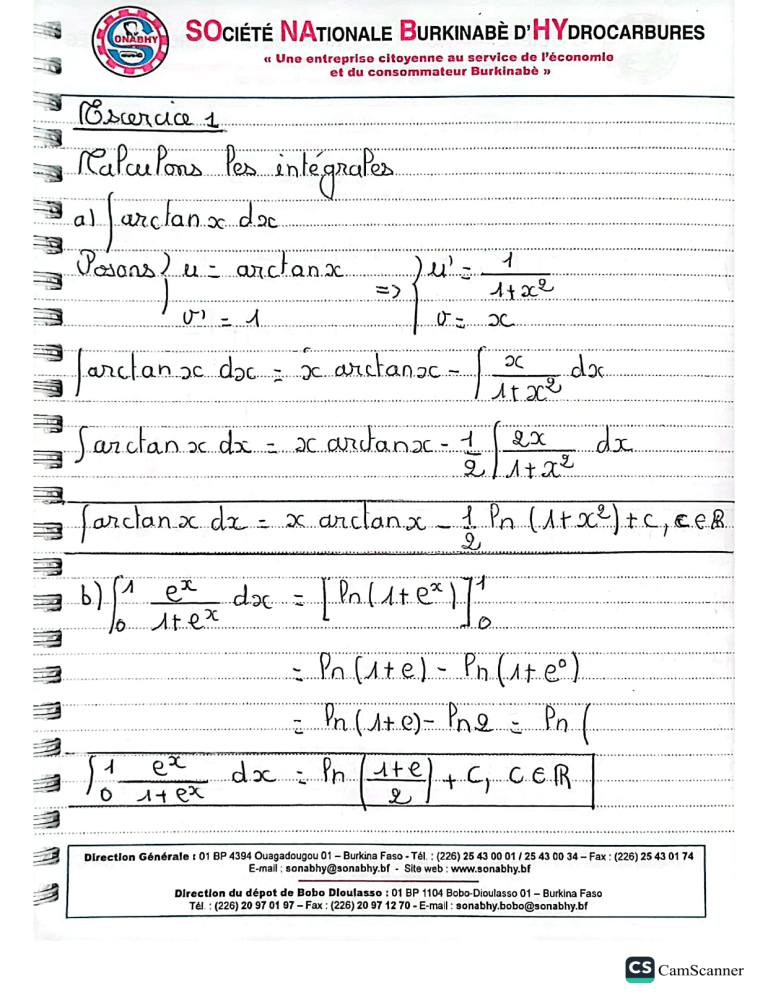 SONABHY
SOCIÉTÉ NATIONALE BURKINABÈ D'HYDROCARBURES
« Une entreprise citoyenne au service de l'économie
et du consommateur Burkinabè »
Exercice 1
Calculons les intégrales
a) ∫ arctan x dx
Posons { u = arctan x, v' = 1 => { u' = 1/(1+x²), v = x
∫ arctan x dx = x arctan x - ∫ x/(1+x²) dx
∫ arctan x dx = x arctan x - 1/2 ∫ 2x/(1+x²) dx
∫ arctan x dx = x arctan x - 1/2 ln (1+x²) + C, c ∈ ℝ
b) ∫₀¹ eˣ/(1+eˣ) dx = [ln(1+eˣ)]₀¹
= ln(1+e) - ln(1+e⁰)
= ln(1+e) - ln2 = ln (
∫₀¹ eˣ/(1+eˣ) dx = ln((1+e)/2) + C, C ∈ ℝ
Direction Générale : 01 BP 4394 Ouagadougou 01 – Burkina Faso - Tél. : (226) 25 43 00 01 / 25 43 00 34 – Fax : (226) 25 43 01 74
E-mail : sonabhy@sonabhy.bf - Site web : www.sonabhy.bf
Direction du dépot de Bobo Dioulasso : 01 BP 1104 Bobo-Dioulasso 01 – Burkina Faso
Tél. : (226) 20 97 01 97 – Fax : (226) 20 97 12 70 - E-mail : sonabhy.bobo@sonabhy.bf
CS CamScanner